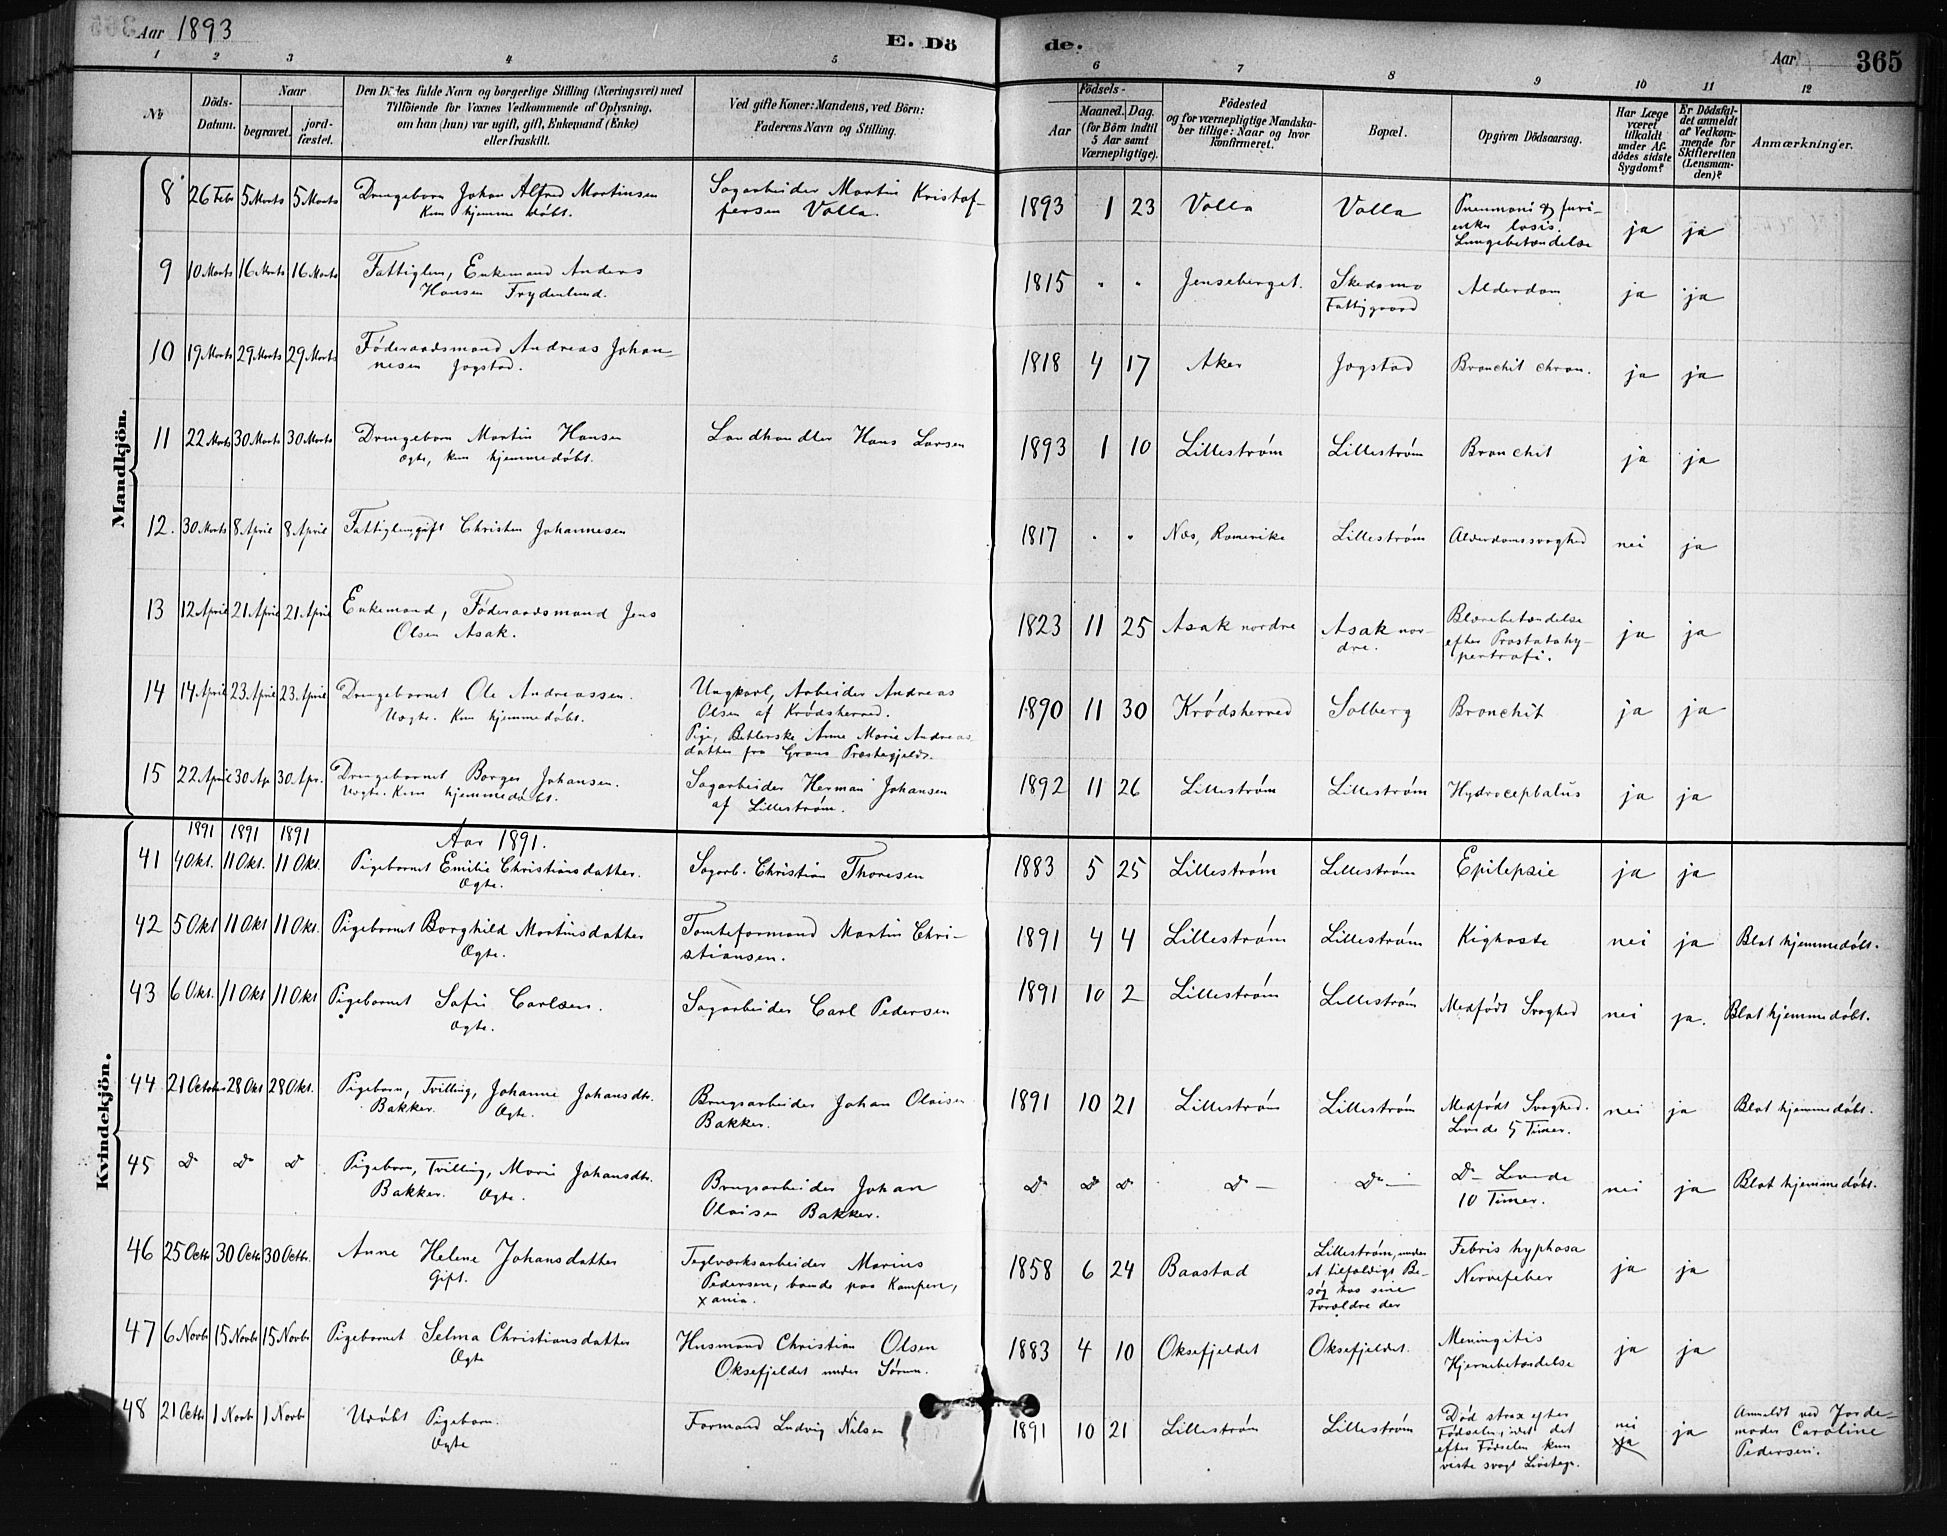 Aar 1893
E. Dö
de.
Aar
365
1 2 3 4 5 6 7 8 9 10 11 12
No
Döds-Datum.
Naar
begravet.
jord-fæstet.
Den Dödes fulde Navn og borgerlige Stilling (Næringsvei) med
Tilföiende for Voxnes Vedkommende af Oplysning,
om han (hun) var ugift, gift, Enkemand (Enke)
eller fraskilt.
Ved gifte Koner: Mandens, ved Börn:
Faderens Navn og Stilling.
Födsels-
Aar
Maaned. Dag.
(for Börn indtil
5 Aar samt
Værnepligtige).
Födested
og for værnepligtige Mandska-
ber tillige: Naar og hvor
konfirmeret.
Bopæl.
Opgiven Dödsaarsag.
Har Læge
været
tilkaldt
under Af-
dödes sidste
Sygdom?
Er Dödsfal-
det anmeldt
af Vedkom-
mende for
Skifteretten
(Lensman-
den)?
Anmærkninger.
Mandkjön.
8 26 Febr 5 Marts 5 Marts Drengebarn Johan Alfred Martinsen Sagarbeider Martin Kristof- 1893 1 23 Volla Volla Pneumoni ja ja
Kun hjemmedøbt. fersen Volla.
Lungebetændelse
9 10 Marts 16 Marts 16 Marts Fattiglem, Enkemand Anders 1815 " " Jenseberget. Skedsmo Alderdom ja ja
Hansen Frydenlund. Fattiggaard
10 19 Marts 29 Marts 29 Marts Føderaadsmand Andreas Johan- 1818 4 17 Aker Jogstad Bronchit chron. ja ja
nesen Jogstad.
11 22 Marts 30 Marts 30 Marts Drengebarn Martin Hansen Landhandler Hans Larsen 1893 1 10 Lillestrøm Lillestrøm Bronchit ja ja
Ægte, kun hjemmedøbt.
12. 30 Marts 8 April 8 April Fattiglem, gift Christen Johannesen 1817 " " Næs, Romerike Lillestrøm Alderdomssvaghed nei ja
13 12 April 21 April 21 April Enkemand, Føderaadsmand Jens 1823 11 25 Asak nordre Asak nor- Blærebetændelse ja ja
Olsen Asak. dre. efter Prostatahy-
pertrofi.
14 14 April 23. April 23. April Drengebarnet Ole Andreassen. Ungkarl, Arbeider Andreas 1890 11 30 Krødsherred Solberg Bronchit ja ja
Uægte. Kun hjemmedøbt. Olsen af Krødsherred.
Pige, Betlerske Anne Marie Andreas-
datter fra Grans Præstegjeld.
15 22 April 30 Ap. 30 Apr. Drengebarnet Borger Johansen. Sagarbeider Herman Johansen 1892 11 26 Lillestrøm Lillestrøm Hydrocephalus ja ja
Uægte. Kun hjemmedøbt. af Lillestrøm.
Kvindekjön.
1891 1891 1891 Aar 1891.
41 4 Okt. 11 Okt. 11 Okt. Pigebarnet Emilie Christiansdatter. Sagarb. Christian Thoresen 1883 5 25 Lillestrøm Lillestrøm Epilepsie ja ja
Ægte.
42 5 Okt 11 Okt 11 Okt. Pigebarnet Borghild Martinsdatter Tomteformand Martin Chri- 1891 4 4 Lillestrøm Lillestrøm Kighoste nei ja Blot hjemmedøbt.
Ægte. stiansen.
43 6 Okt. 11 Okt 11 Okt Pigebarnet Sofie Carlsen. Sagarbeider Carl Pedersen 1891 10 2 Lillestrøm Lillestrøm Medfødt Svaghed nei ja. Blot hjemmedøbt.
Ægte.
44 21 October 28 Okt 28 Okt. Pigebarn, Tvilling, Johanne Johansdtr. Brugsarbeider Johan Olaisen 1891 10 21 Lillestrøm Lillestrøm Medfødt Svaghed. nei ja Blot hjemmedøbt.
Bakker. Ægte. Bakker. Levede 5 Timer.
45 Do Do Do Pigebarn, Tvilling, Marie Johansdtr. Brugsarbeider Johan Do Do Do Do Do Do Levede nei ja Blot hjemmedøbt.
Bakker. Ægte. Olaisen Bakker. 10 Timer.
46 25 Octb 30 Octb 30 Octb. Anne Helene Johansdatter Teglværksarbeider Marius 1858 6 24 Baastad Lillestrøm, under Febris typhosa ja ja
Gift. Pedersen, boende paa Kampen, et tilfældigt Be- Nervefeber
Xania. søg hos sine
Forældre der
47 6 Novbr 15 Novbr 15 Novbr Pigebarnet Selma Christiansdatter Husmand Christian Olsen 1883 4 10 Oksefjeldet Oksefjeldet. Meningitis ja ja
Ægte Oksefjeldet under Sørum. Hjernebetændelse
48 21 Octb 1 Novbr 1 Novbr Udøbt Pigebarn. Formand Ludvig Nilsen 1891 10 21 Lillestrøm Lillestrøm Død strax efter nei ja Anmeldt ved Jorde-
Ægte Fødselen, idet det ja moder Caroline
efter Fødselen kun Pedersen.
viste svagt Livstegn.